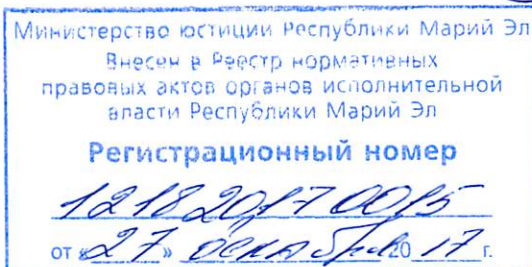 Министерство юстиции Республики Марий Эл
Внесен в Реестр нормативных
правовых актов органов исполнительной
власти Республики Марий Эл
Регистрационный номер
121820170015
от «27» декабря 2017 г.